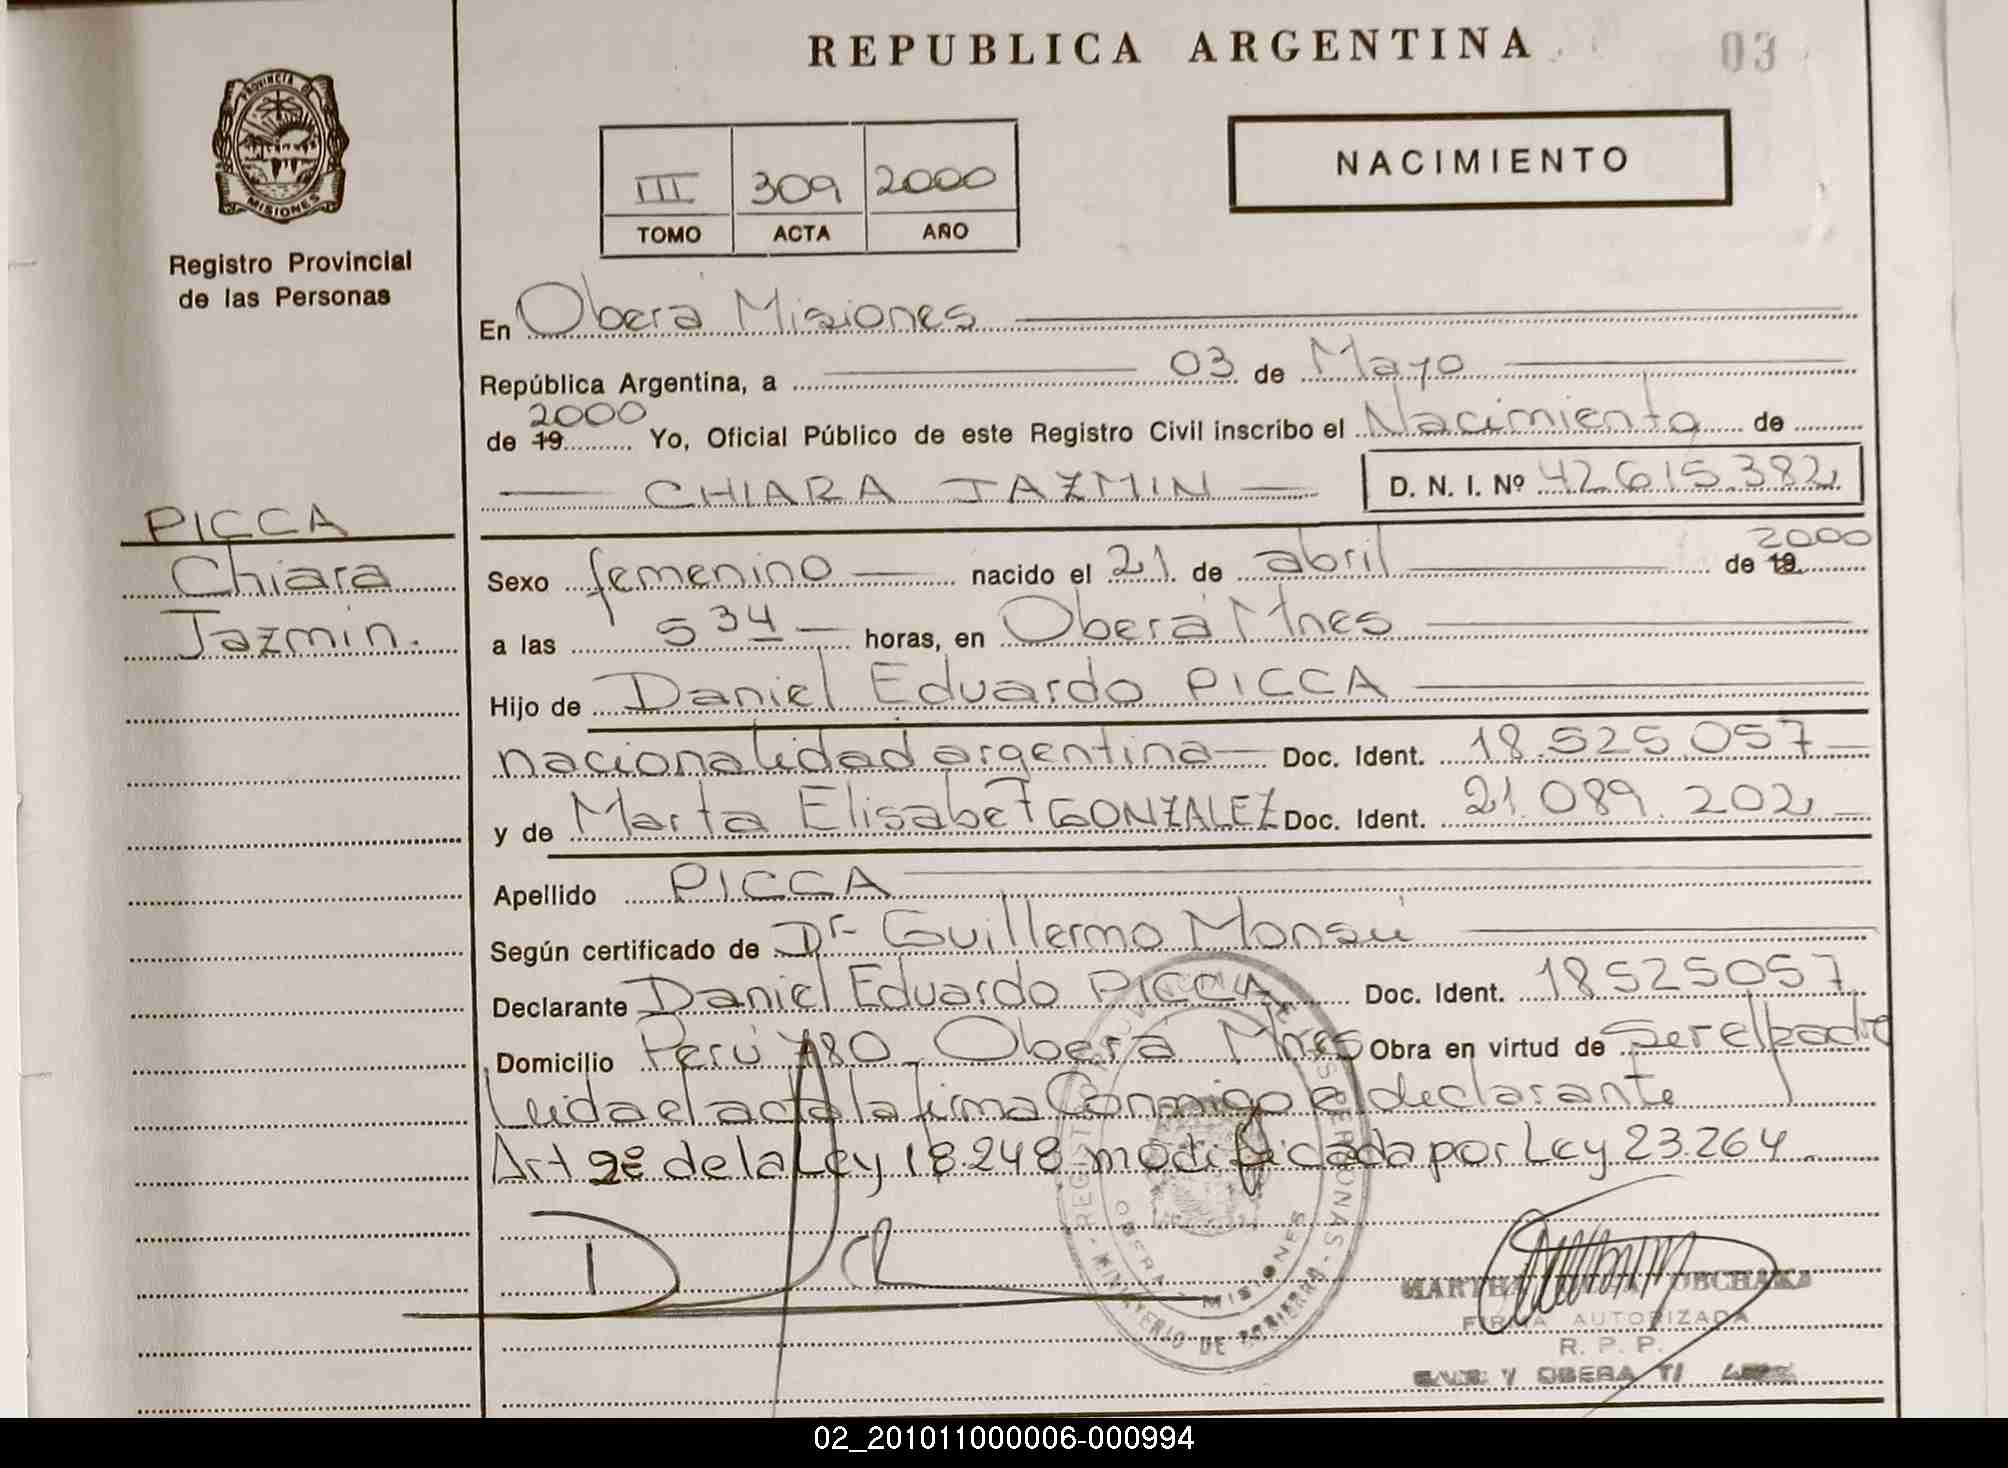 REPUBLICA ARGENTINA
03
PROVINCIA DE
MISIONES
Registro Provincial
de las Personas
III 309 2000
TOMO ACTA AÑO
NACIMIENTO
En Oberá Misiones
República Argentina, a 03 de Mayo
2000
de 19 Yo, Oficial Público de este Registro Civil inscribo el Nacimiento de
CHIARA JAZMIN D. N. I. Nº 42615382
PICCA
Chiara
Jazmin.
2000
Sexo femenino nacido el 21 de abril de 19
a las 5 34 horas, en Oberá Mnes
Hijo de Daniel Eduardo PICCA
nacionalidad argentina Doc. Ident. 18.525.057
y de Marta Elisabet GONZALEZ Doc. Ident. 21.089.202
Apellido PICCA
Según certificado de Dr Guillermo Monsú
Declarante Daniel Eduardo PICCA Doc. Ident. 18525057
Domicilio Perú 780 Oberá Mnes Obra en virtud de Ser el padre
Leida el acta la firma Conmigo el declarante
Art 2º de la Ley 18.248 modificada por Ley 23.264
OBERA - MISIONES
MINISTERIO DE GOBIERNO
FIRMA AUTORIZADA
R. P. P.
OBERA
02_201011000006-000994